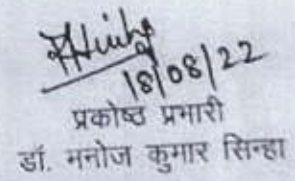 18/08/22
प्रकोष्ठ प्रभारी
डॉ. मनोज कुमार सिन्हा